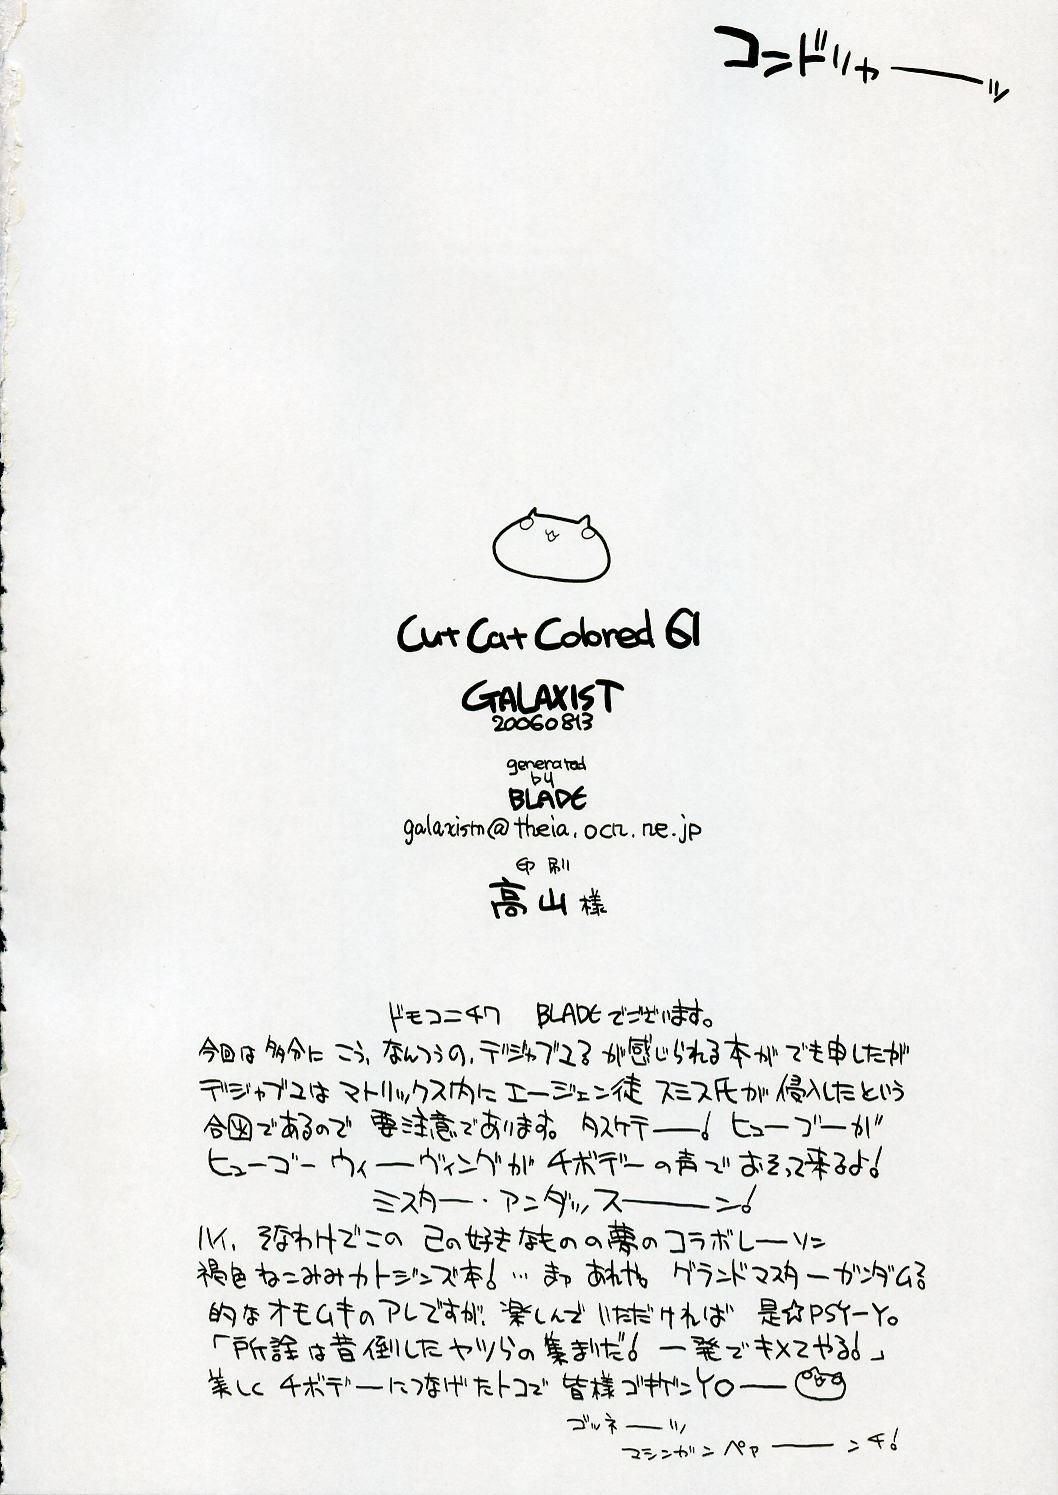 コンドリャーーッ
Cut Cat Colored 61
GALAXIST
20060813
generated
by
BLADE
galaxism@theia.ocn.ne.jp
印刷
高山様
ドモコニチワ BLADEでございます。
今回は多分に こう、なんつうの、デジャブユる が感じられる本が でも申したが
デジャブユは マトリックス内に エージェン徒 スミス氏が 侵入したという
合図であるので 要注意であります。 タスケテーー! ヒューゴーが
ヒューゴー ウィーーヴィングが チボデーの声で おそって来るよ!
ミスター・アンダッスーーーン!
ハイ、そなわけでこの 己の好きなものの夢の コラボレーーソン
褐色ねこみみカトジンズ本! … まァ あれや。 グランドマスターガンダムる
的な オモムキのアレですが、楽しんで いただければ 是☆PSYーY。
「所詮は昔倒したヤツらの集まりだ! 一発でキメてやる!」
美しく チボデーにつなげたトコで 皆様ゴキゲンYOーー
ゴルネーーッ
マシンガン ペァーーーンチ!